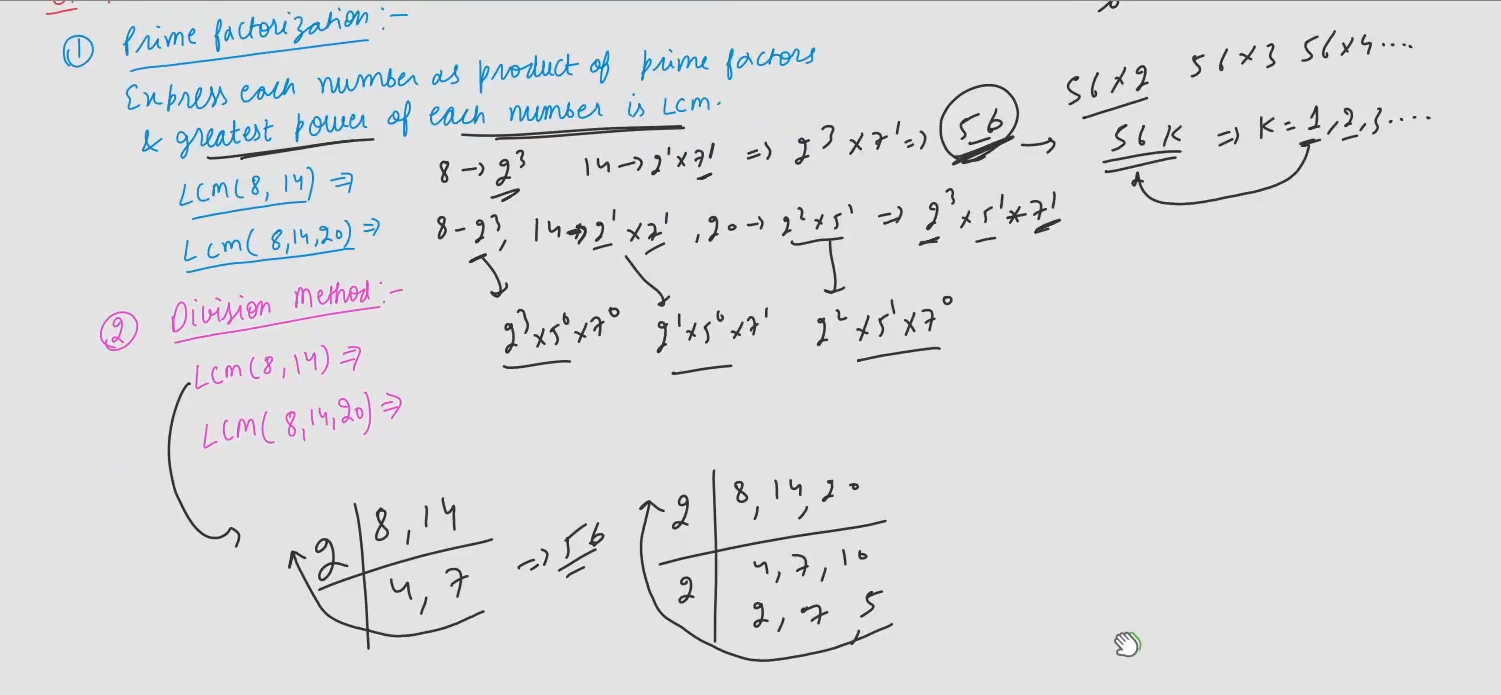 ① Prime factorization :-
Express each number as product of prime factors
& greatest power of each number is LCM.
56×2 56×3 56×4....
LCM(8, 14) ⇒ 8→2³ 14→2¹×7¹ ⇒ 2³×7¹ ⇒ 56 → 56K ⇒ K=1,2,3....
Lcm(8,14,20) ⇒ 8-2³, 14→2¹×7¹, 20→2²×5¹ ⇒ 2³×5¹×7¹
2³×5⁰×7⁰ 2¹×5⁰×7¹ 2²×5¹×7⁰
② Division Method:-
LCM(8,14) ⇒
LCM(8,14,20) ⇒
2 | 8, 14
4, 7 ⇒ 56
2 | 8, 14, 20
2 | 4, 7, 10
2, 7, 5